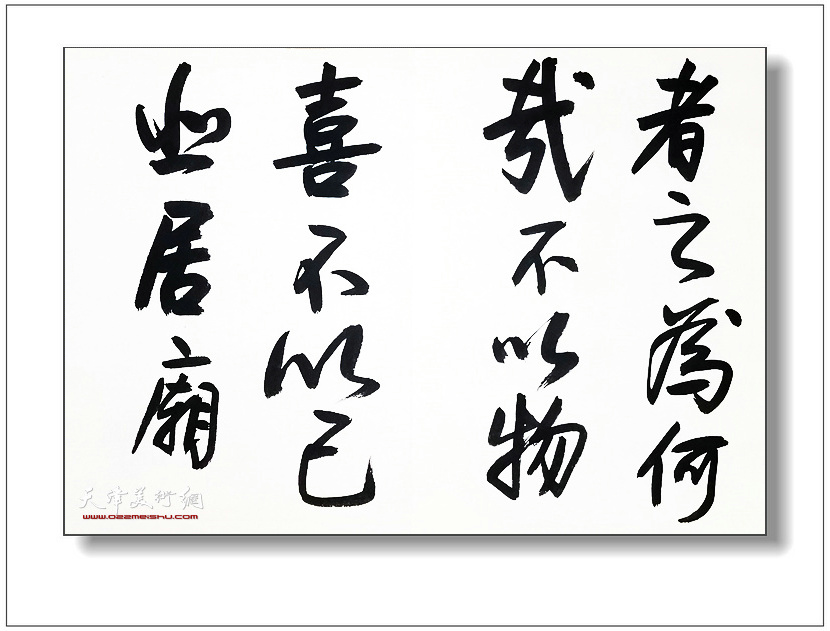 者之為何
哉不以物
喜不以己
悲居廟
天津美術網
www.022meishu.com